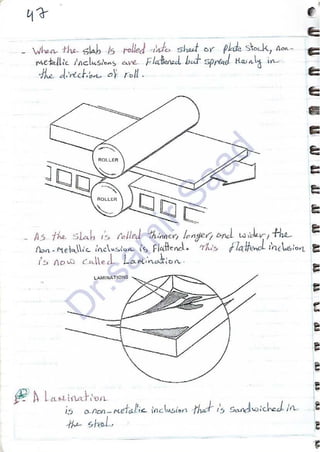 47
- When the slab is rolled into sheet or plate stock, non-
metallic inclusions are flattened but spread mainly in
the direction of roll.
ROLLER
ROLLER
- As the slab is rolled thinner, longer, and wider, the
non-metallic inclusion is flattend. This flattend inclusion
is now called Lamination.
LAMINATIONS
A Lamination
is a non-metalic inclusion that is sandwiched in
the steel.
Dr. Samir Saad